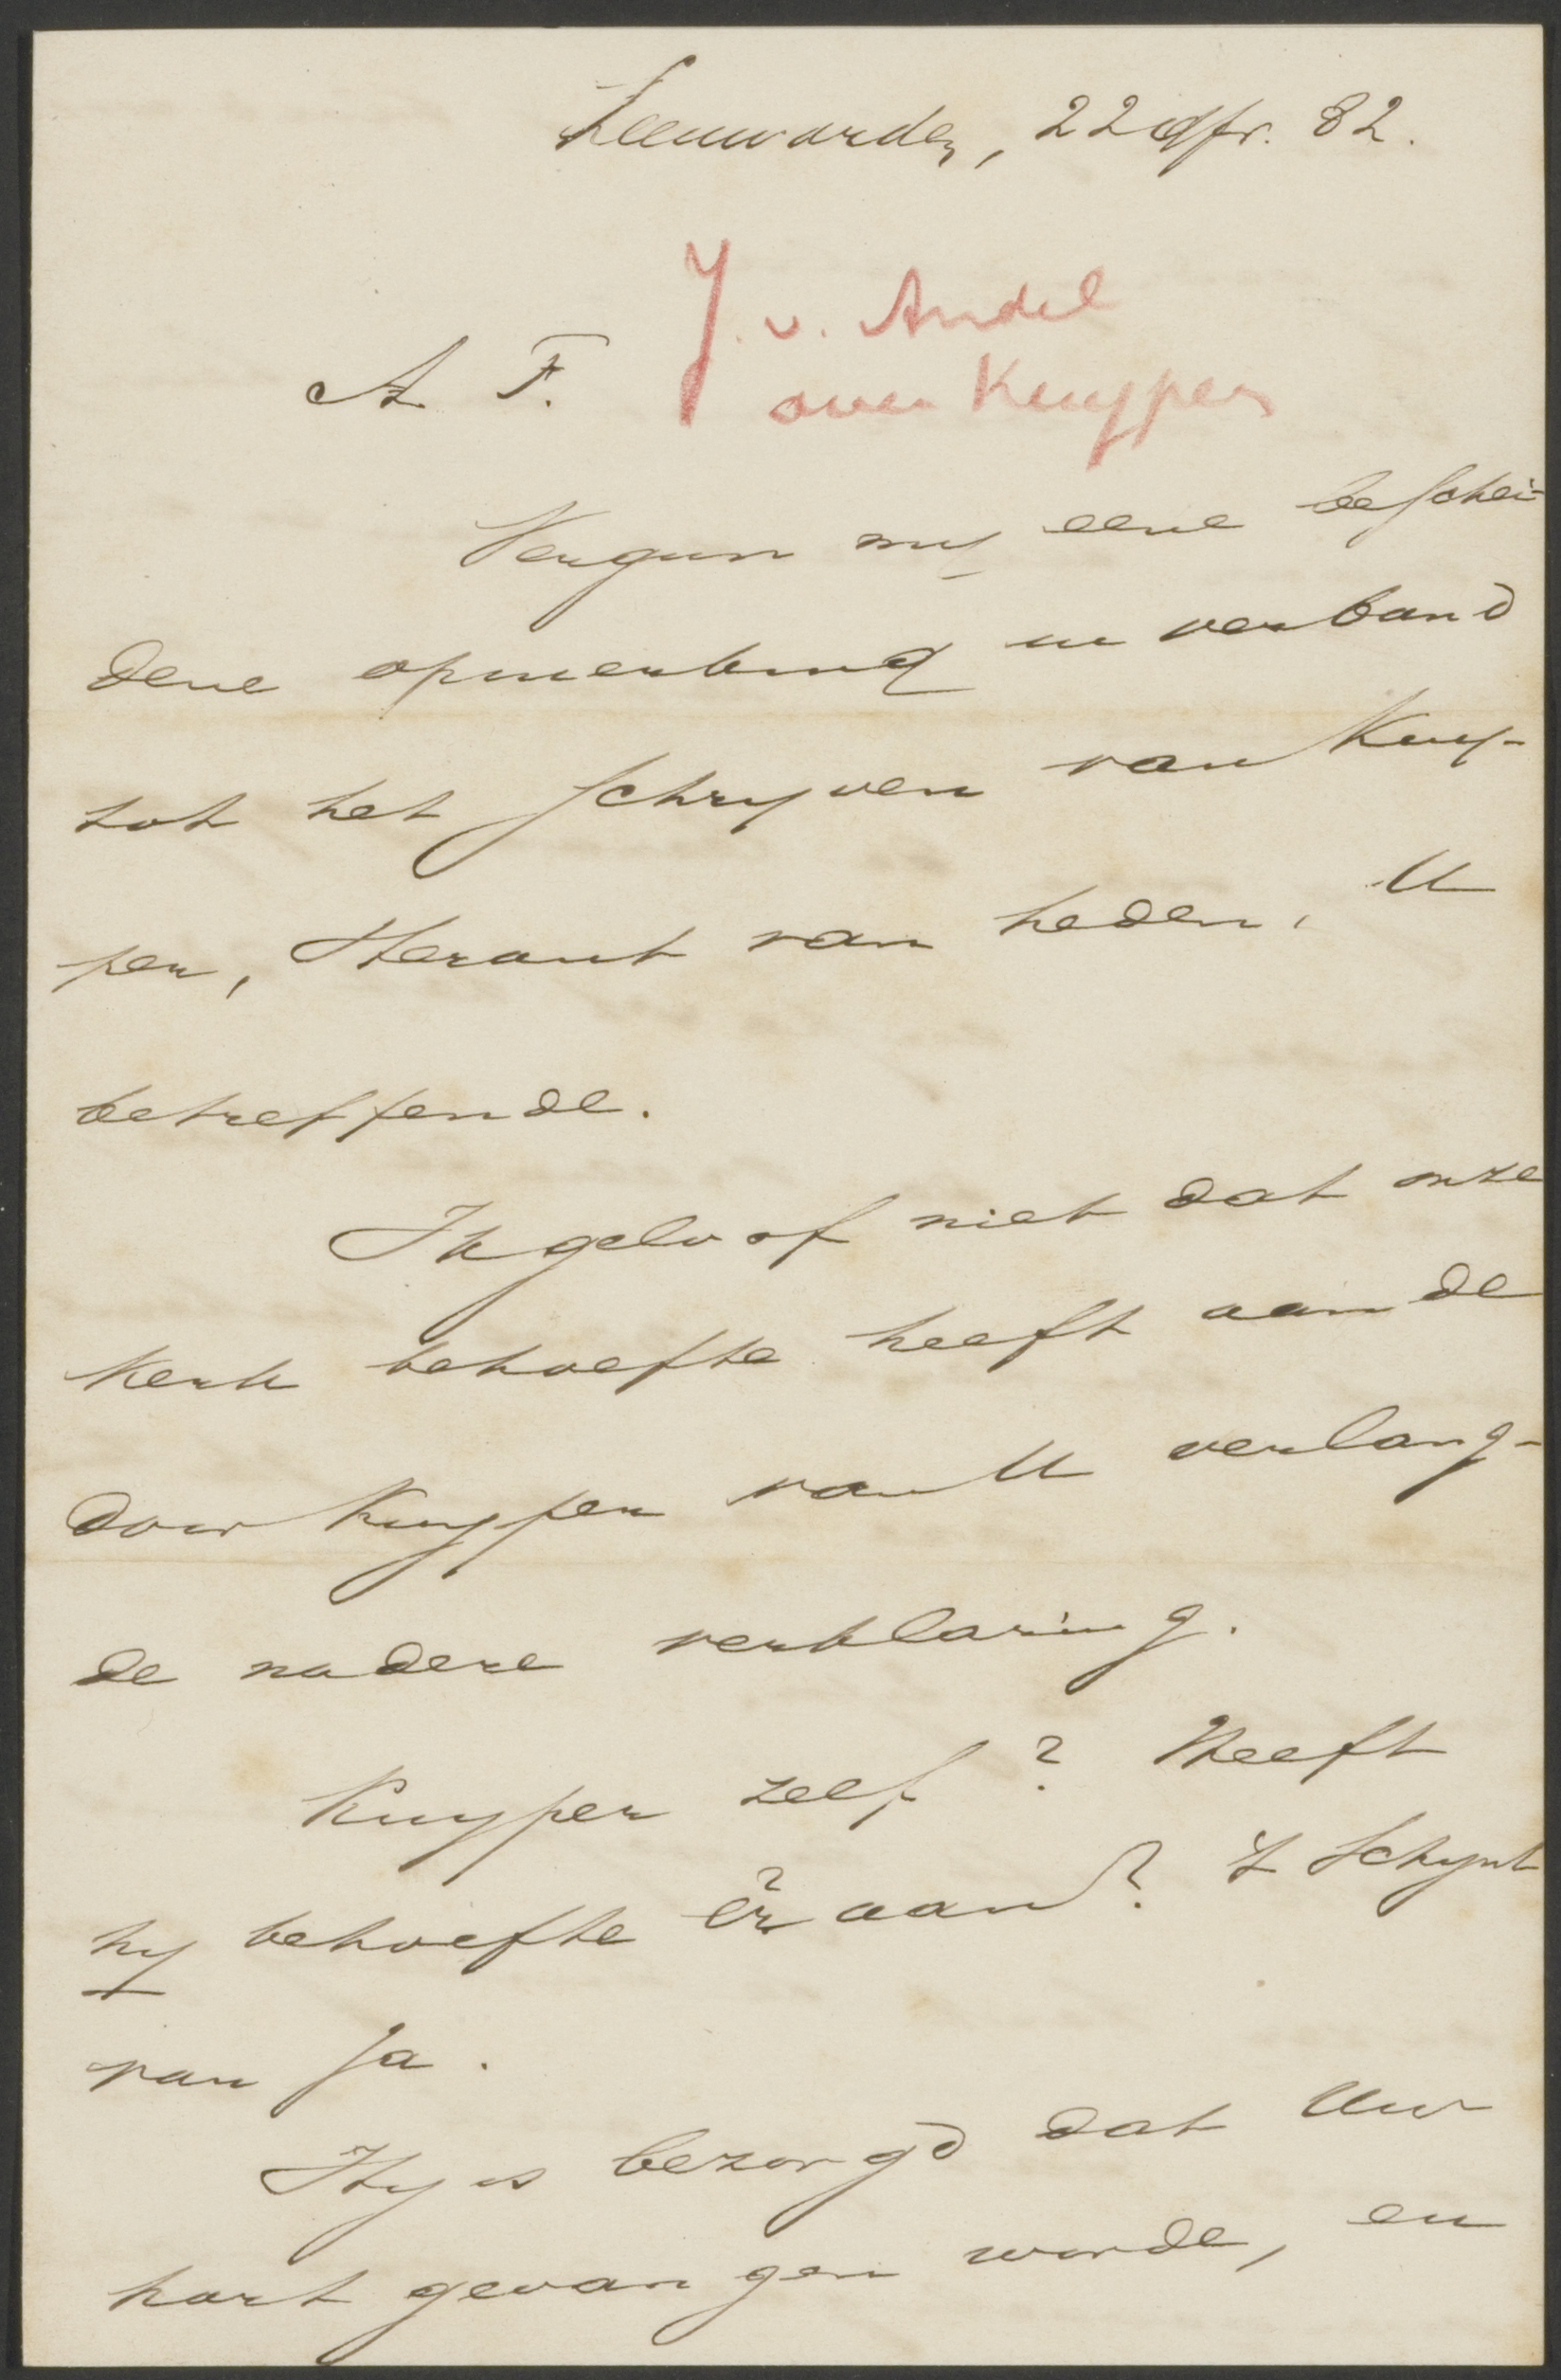 Leeuwarden, 22 Apr. 82.
J. v. Andel
over Kuyper
A. F.
Vergun mij eene beschei-
dene opmerking in verband
tot het schrijven van Kuy-
per, Heraut van heden, U
betreffende.
Ik geloof niet dat onze
Kerk behoefte heeft aan de
door Kuyper van U verlang-
de nadere verklaring.
Kuyper zelf? Heeft
hij behoefte er aan? 't Schijnt
van Ja.
Hij is bezorgd dat Uw
hart gevangen worde, en